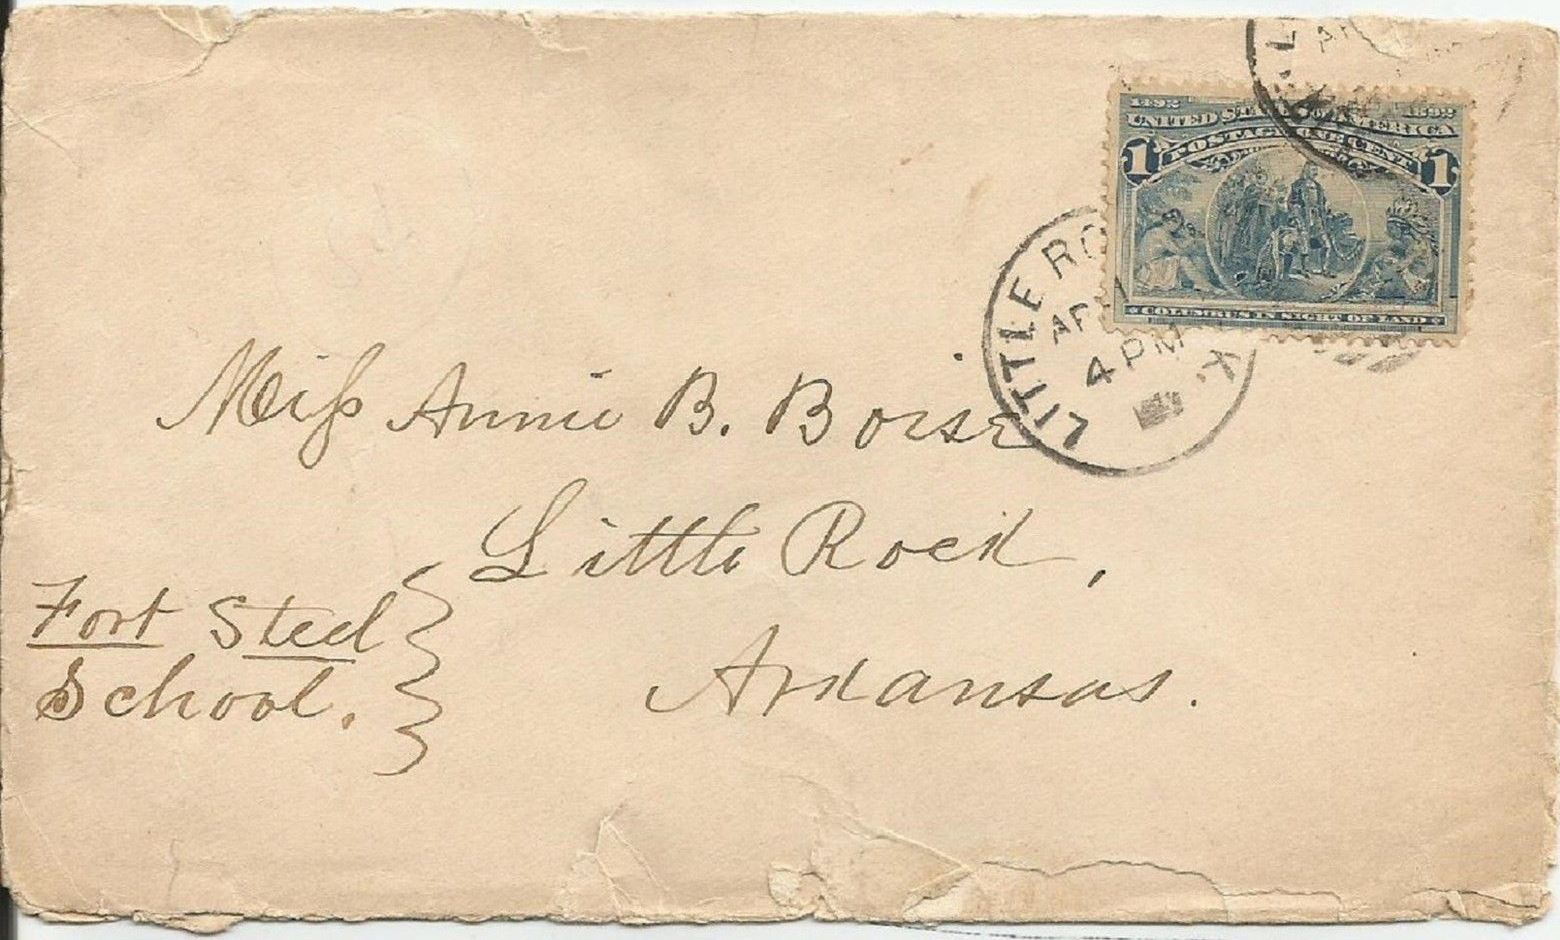 1892 1892
UNITED STATES OF AMERICA
1 POSTAGE ONE CENT 1
COLUMBUS IN SIGHT OF LAND
LITTLE RO K.
AP
4 PM
L
AP
Miss Annie B. Boise
Little Rock,
Arkansas.
Fort Steel
School.